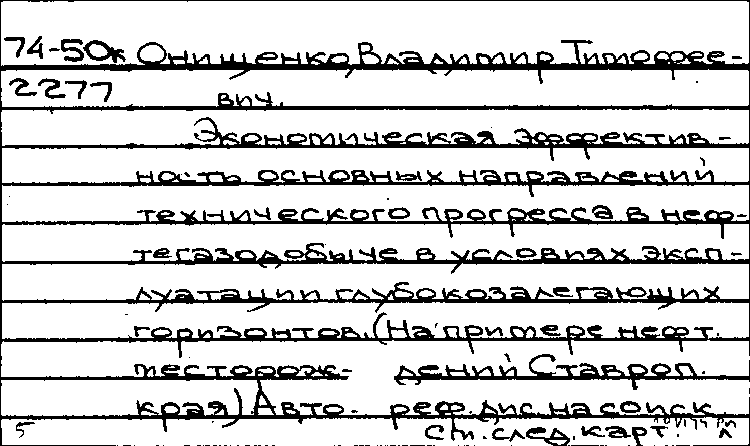 74-50к Онищенко, Владимир Тимофее-
2277 вич.
Экономическая эффектив-
ность основных направлений
технического прогресса в неф-
тегазодобыче в условиях эксп-
луатации глубокозалегающих
горизонтов. (На примере нефт.
месторож- дений Ставроп.
края) Авто- реф. дис. на соиск.
5 См. след. карт.